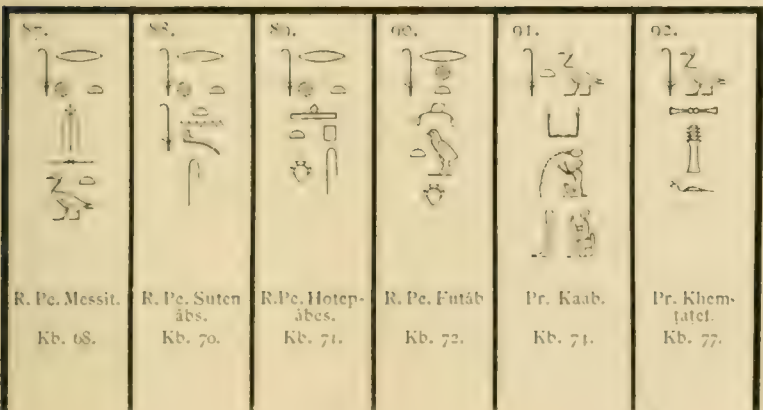 87. 88. 89. 90. 91. 92.
R. Pe. Messit. R. Pe. Suten R.Pe. Hotep- R. Pe. Futàb Pr. Kaab. Pr. Khem-
àbs. àbes. tatef.
Kb. 68. Kb. 70. Kb. 71. Kb. 72. Kb. 74. Kb. 77.